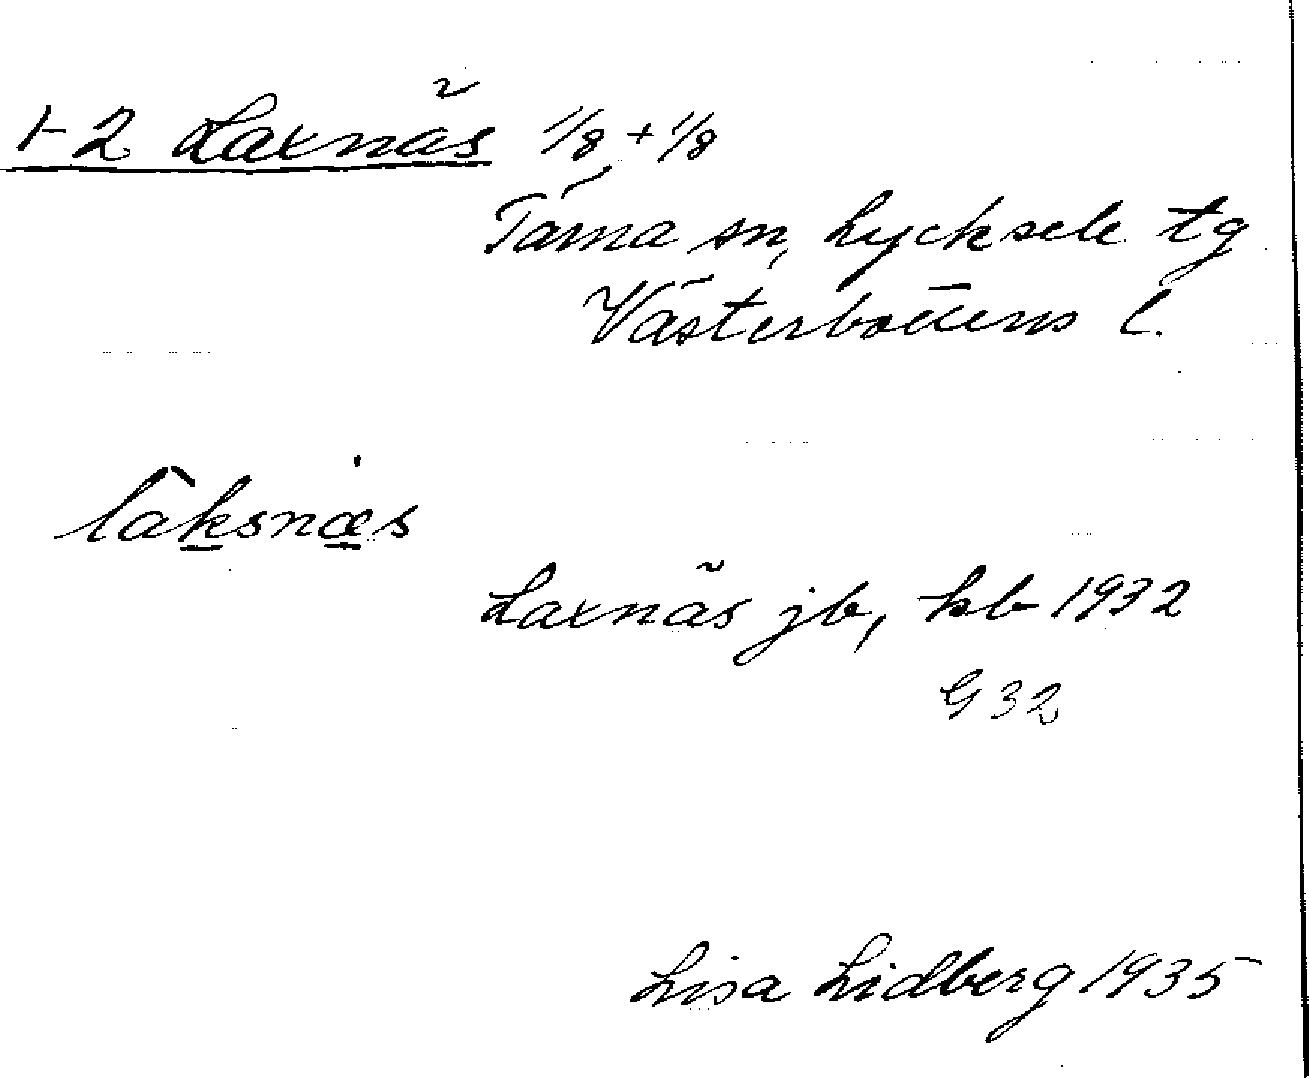 1-2 Laxnäs 1/8 + 1/8
Tärna sn, Lycksele tg
Västerbottens l.
lâksnæs
Laxnäs jb, kb 1932
G 32
Lisa Lidberg 1935